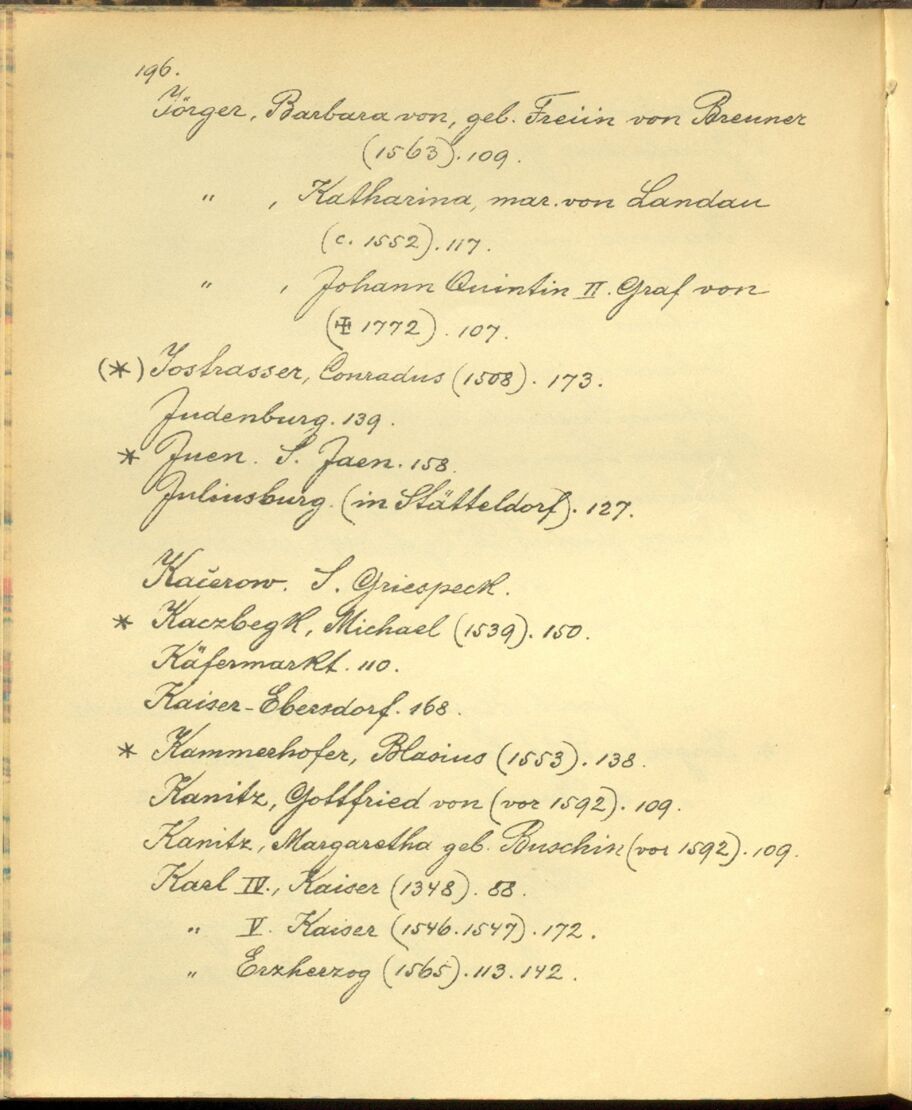 196.
Jörger, Barbara von, geb. Freiin von Breuner
(1563). 109.
" , Katharina, mar. von Landau
(c. 1552). 117.
" , Johann Quintin II. Graf von
(✠ 1772). 107.
(*) Jostrasser, Conradus (1508). 173.
Judenburg. 139.
* Juen. S. Jaen. 158.
Juliusburg. (in Stätteldorf). 127.
Kačerow. S. Griespeck.
* Kaczbegk, Michael (1539). 150.
Käfermarkt. 110.
Kaiser-Ebersdorf. 168.
* Kammerhofer, Blasius (1553). 138.
Kanitz, Gottfried von (vor 1592). 109.
Kanitz, Margaretha geb. Buschin (vor 1592). 109.
Karl IV., Kaiser (1348). 88.
" V. Kaiser (1546.1547). 172.
" Erzherzog (1565). 113. 142.